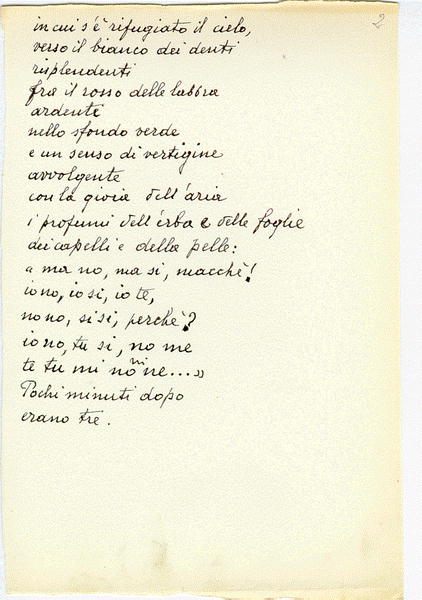 2
in cui s'è rifugiato il cielo,
verso il bianco dei denti
risplendenti
fra il rosso delle labbra
ardenti
nello sfondo verde
e un senso di vertigine
avvolgente
con la gioia dell'aria
i profumi dell'erba e delle foglie
dei capelli e della pelle:
« ma no, ma si, macchè!
io no, io si, io te,
no no, si si, perchè?
io no, tu si, no me
te tu mi no ne...»
Pochi minuti dopo
erano tre.